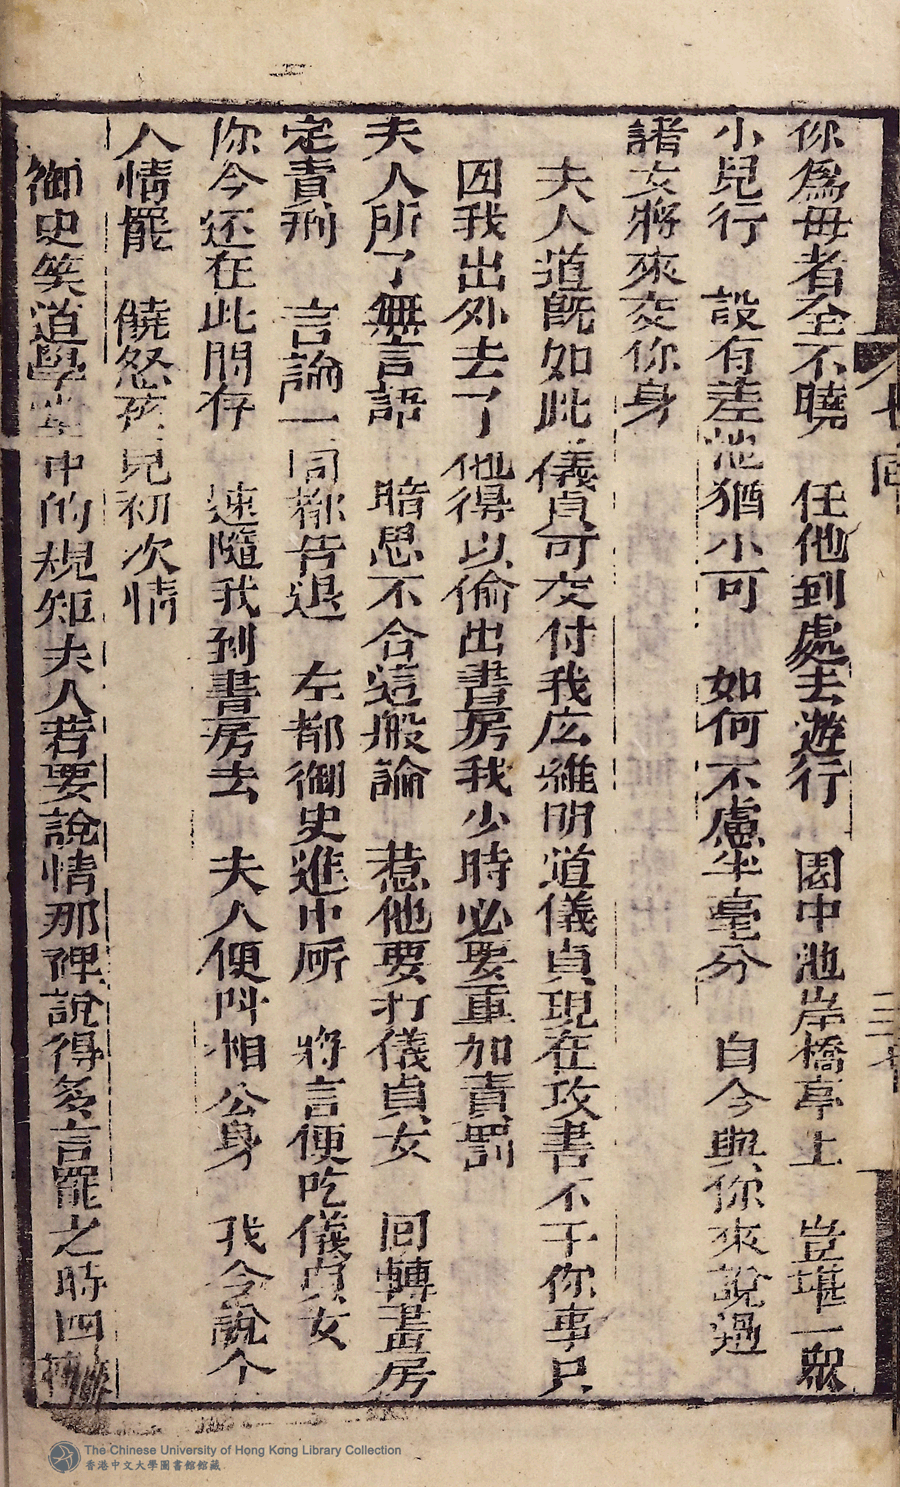 你爲毋者全不曉　任他到處去遊行　园中池岸橋亭上　豈堪一衆
小兒行　設有差池猶小可　如何不慮半毫分　自今與你來說過
諸女將來交你身
夫人道旣如此儀貞可交付我広維明道儀貞現在攻書不干你事只
因我出外去了他得以偷出書房我少時必要重加責罰
夫人所了無言語　暗思不合這般論　惹他要打儀貞女　回轉書房
定責刑　言論一囬都告退　左都御史進中所　將言便吃儀貞女
你今还在此間存　速隨我到書房去　夫人便呌相公身　我今說个
人情罷　饒怒孩兒初次情
御史笑道學堂中的規矩夫人若要說情那裡說得多言罷之時四
七囬
三七
The Chinese University of Hong Kong Library Collection
香港中文大學圖書館館藏